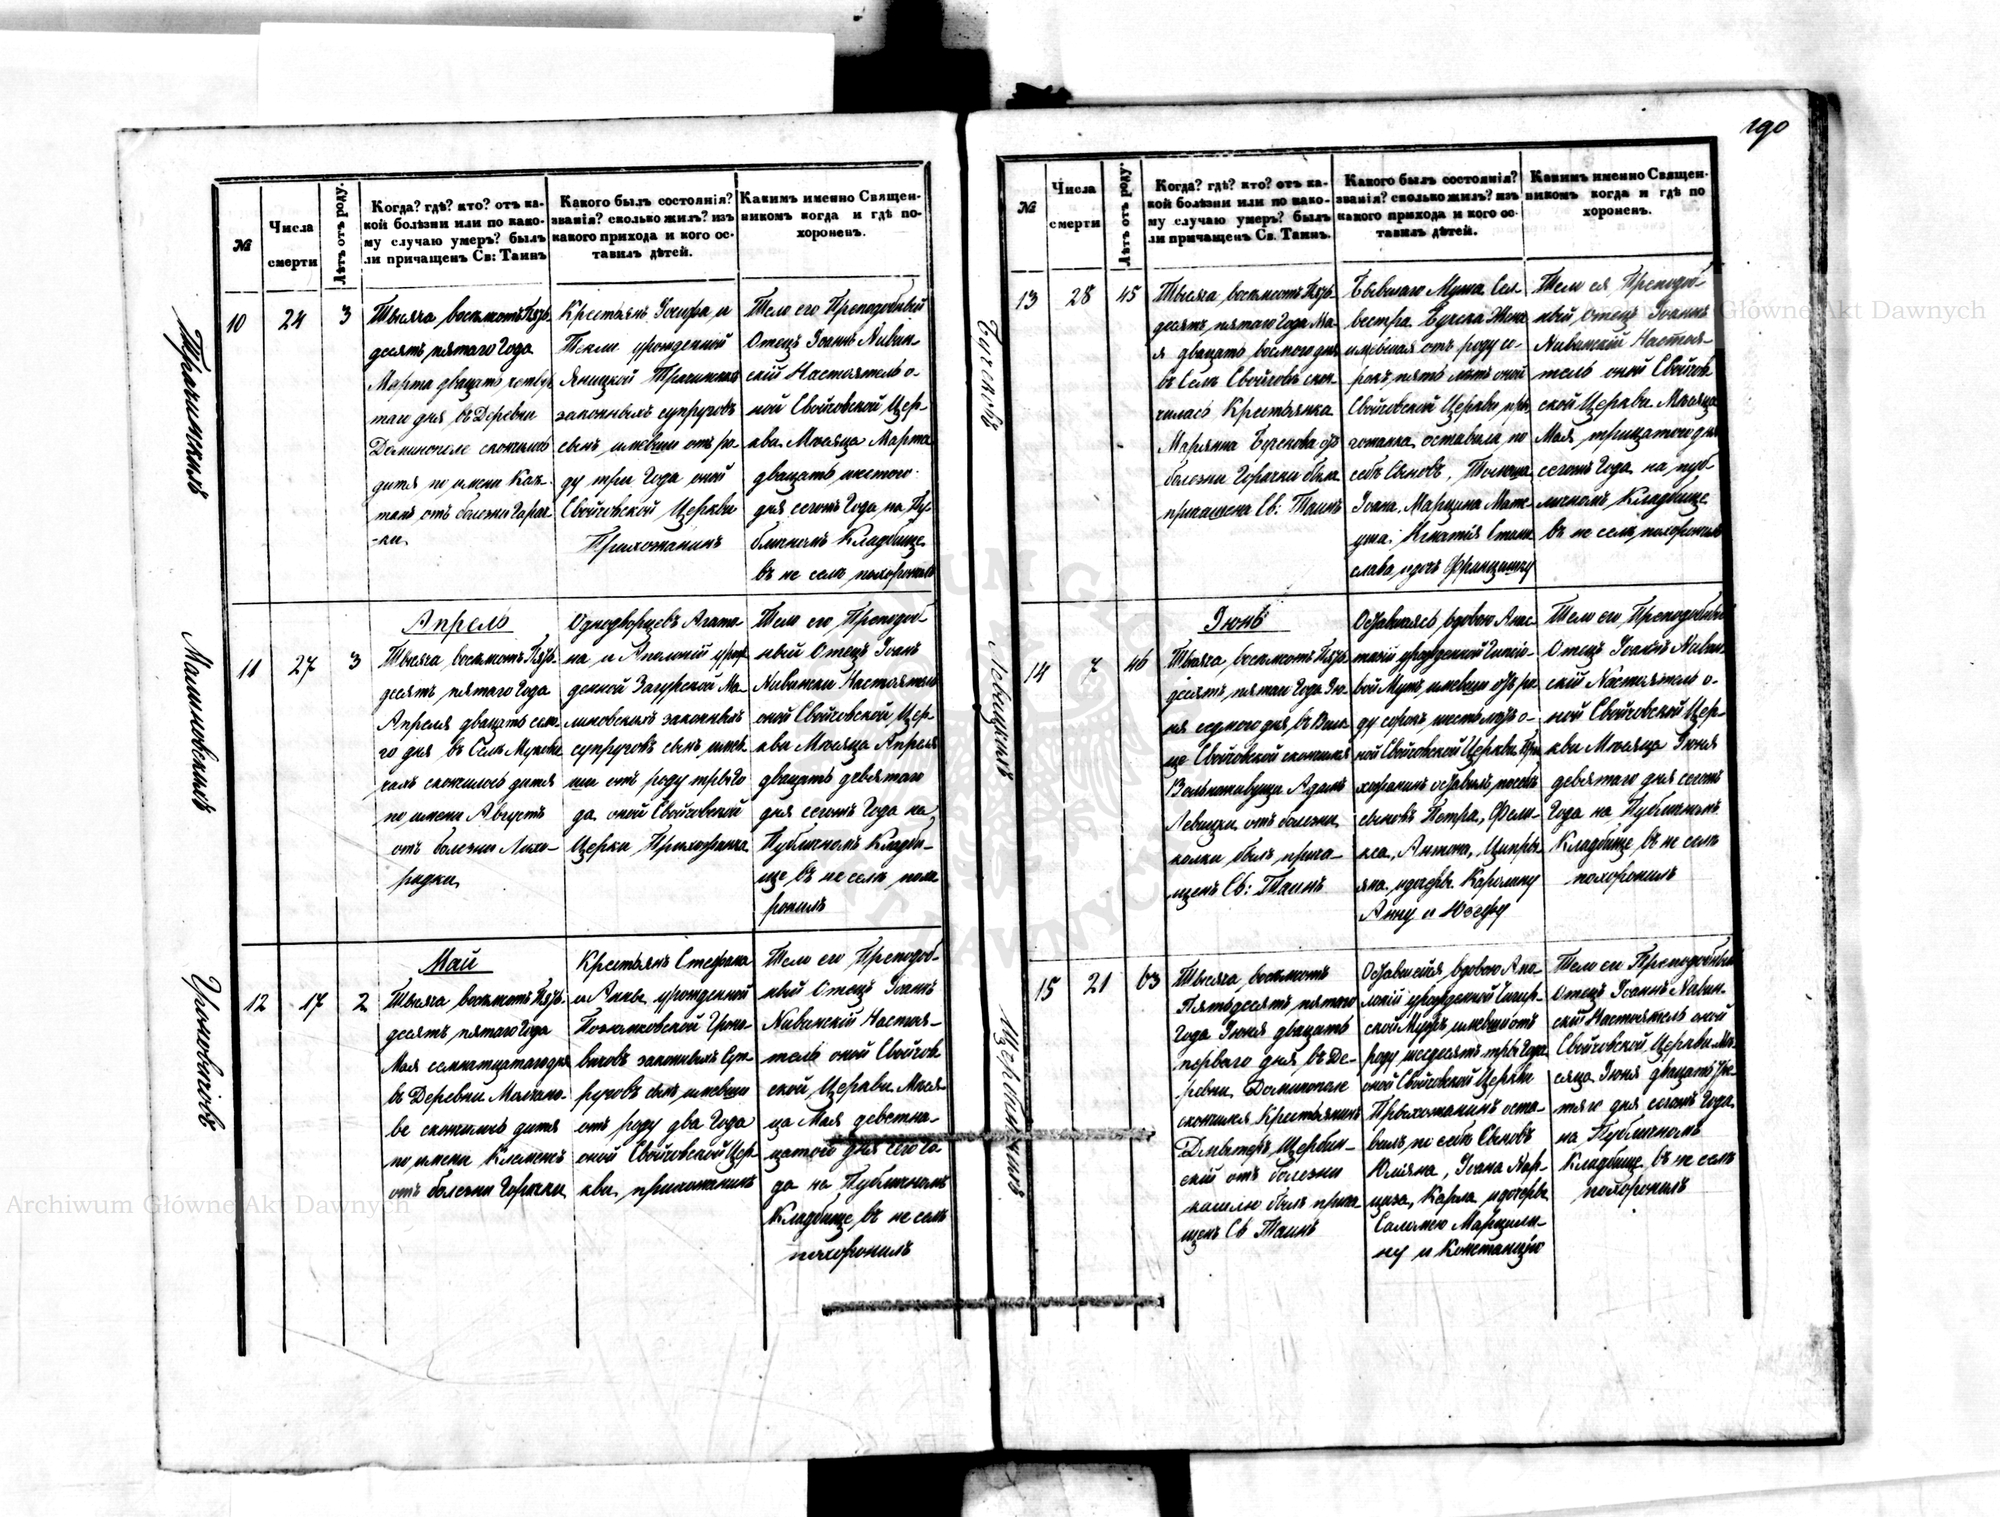 190
№
Числа
смерти
Лѣтъ отъ роду.
Когда? гдѣ? кто? отъ ка-
кой болѣзни или по како-
му случаю умеръ? былъ
ли причащенъ Св: Таинъ
Какого былъ состоянія?
званія? сколько жилъ? изъ
какого прихода и кого ос-
тавилъ дѣтей.
Какимъ именно Священ-
никомъ когда и гдѣ по-
хороненъ.
10
24
3
Тысяча восемсотъ Пядь-
десятъ пятаго Года
Марта двацать четвер
таго дня въ Деревни
Доминополе скончилось
дитя по имени Каэ-
танъ отъ болезни Гаряч
-ки
Крестьянъ Іосифа и
Текли урожденной
законныхъ супруговъ
сынъ имевши отъ ро-
ду три Года оной
Свойчовской Церкви
Прихожанинъ
Тело его Преподобный
Отецъ Іоаннъ Нивин-
скій Настоятель о-
ной Свойчовской Цер-
кви Месяца Марта
двацать шестого
дня сегожъ Года на Пу-
бличномъ Кладбище
въ не селѣ похоронилъ
Малиновскихъ
11
27
3
Апрель
Тысяча восемсотъ Пядь-
десятъ пятаго Года
Апреля двацать сем-
го дня въ Селѣ
скончилось дитя
по имени Августъ
отъ болезни Лихо-
радки
Однодворцевъ Агато-
на и Аполоніи урож
денной Загурской Ма-
линовскихъ законныхъ
супруговъ сынъ имев-
ши отъ роду три Го
да оной Свойчовской
Церкви Прихожанка
Тело его Преподоб-
ный Отецъ Іоанъ
Нивински Настоятель
оной Свойчовской Цер-
кви Месяца Апреля
двацать девятаго
дня сегожъ Года на
Публичномъ Кладби-
ще въ не селѣ похо
ронилъ
12
17
2
Май
Тысяча восемсотъ Пядь-
десятъ пятаго Года
Мая семнатцатаго дня
въ Деревни
скончилось дитя
по имени Клеменъ
отъ болезни Горячки
Крестьянъ Стефана
и Анны урожденной
законныхъ Суп-
руговъ сынъ имевши
отъ роду два Года
оной Свойчовской Цер-
кви прихожанинъ
Тело его Преподоб-
ный Отецъ Іоаннъ
Нивинскій Настоя-
тель оной Свойчов
ской Церкви Меся-
ца Мая девятна-
цатого дня сего Го
да на Публичномъ
Кладбище въ не селѣ
похоронилъ
№
Числа
смерти
Лѣтъ отъ роду.
Когда? гдѣ? кто? отъ ка-
кой болѣзни или по како-
му случаю умеръ? былъ
ли причащенъ Св. Таинъ.
Какого былъ состоянія?
званія? сколько жилъ? изъ
какого прихода и кого ос-
тавилъ дѣтей.
Какимъ именно Священ-
никомъ когда и гдѣ по
хороненъ.
13
28
45
Тысяча восемсотъ Пядь
десятъ пятаго Года Ма-
я двацать восмого дня
въ Селѣ Свойчовѣ скон-
чилась Крестьянка
Марянна отъ
болезни Горячки была
причащена Св: Таинъ
Бывшаго Мужа Сил-
вестра Жена
имевшая отъ роду со-
рокъ пять летъ оной
Свойчовской Церкви при
хожанка оставила по
себѣ Сыновъ,
Іоана, Марцина Мате-
уша, Игнатія Стани
слава и дочъ Францишку
Тело ея Преподоб-
ный Отецъ Іоаннъ
Нивинскій Настоя-
тель оной Свойчов
ской Церкви Месяца
Мая трицатого дня
сегожъ Года на пуб-
личномъ Кладбище
въ не селѣ похоронилъ
Левицкихъ
14
7
46
Іюнь
Тысяча восемсотъ Пядь-
десятъ пятаго Года Ію-
ня седмого дня въ
Свойчовской скончился
Адамъ
Левицки отъ болезни
колки былъ прича-
щенъ Св: Таинъ
Оставшаясь вдовою Анас-
тазіи урожденной
Мужъ имевши отъ ро
ду сорокъ шесть летъ о-
ной Свойчовской Церкви При
хожанинъ оставилъ по себѣ
сыновъ Петра, Фели-
кса, Антона, Ципры-
яна и дочеры Каролину
Анну и Юзефу
Тело его Преподобный
Отецъ Іоаннъ Нивин-
скій Настоятель о-
ной Свойчовской Цер-
кви Месяца Іюня
девятаго дня сегожъ
Года на Публичномъ
Кладбище въ не селѣ
похоронилъ
15
21
63
Тысяча восемсотъ
Пятьдесятъ пятаго
Года Іюня двацать
перваго дня въ Де-
ревни Доминополе
скончился Крестьянинъ
Дмытеръ Щербин-
скій отъ болезни
кашлю былъ прича
щенъ Св Таинъ
Оставшейся вдовою Апо-
лоніи урожденной
Мужъ имевши отъ
роду шедесятъ три Года
оной Свойчовской Церкви
Прихожанинъ оста-
вилъ по себѣ Сыновъ
Юліяна, Іоана Нар-
циза, Карла и дочеры
Саломею Марцели-
ну и Констанцію
Тело его Преподобный
Отецъ Іоаннъ Нивин-
скій Настоятель оной
Свойчовской Церкви Ме-
сяца Іюня двацать тре-
тяго дня сегожъ Года
на Публичномъ
Кладбище въ не селѣ
похоронилъ
Archiwum Główne Akt Dawnych
Archiwum Główne Akt Dawnych